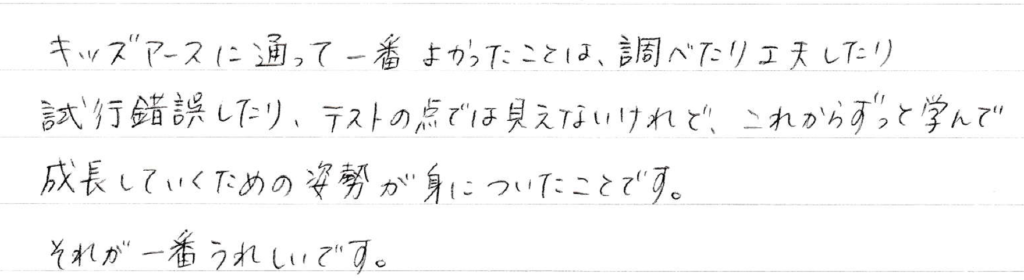 キッズアースに通って一番よかったことは、調べたり工夫したり
試行錯誤したり、テストの点では見えないけれど、これからずっと学んで
成長していくための姿勢が身についたことです。
それが一番うれしいです。